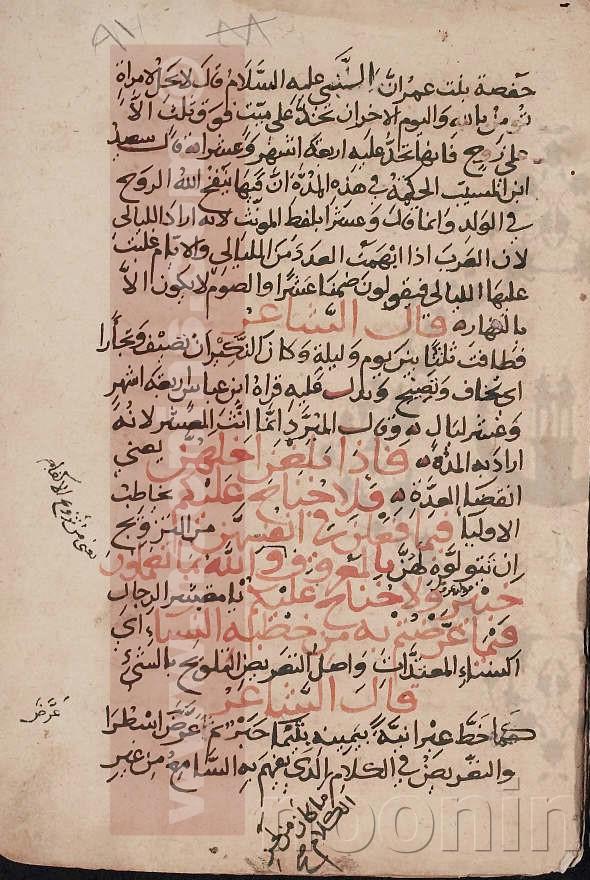 ٩٧ ٨٨
حفصة بنت عمران النبي عليه السلام قال لا يحل لامراة
تومن بالله واليوم الاخر ان تحد على ميت فوق ثلث الا
على زوج فانها تحد عليه اربعة اشهر وعشرا قال سعيد
ابن المسيب الحكمة في هذه المدة ان فيها ينفخ الله الروح
في الولد وانما قال وعشرا بلفظ المونث لانه اراد الليالي
لان العرب اذا ابهمت العدد من الليالي والايام غلبت
عليها الليالي فيقولون صمنا عشرا والصوم لا يكون الا
بالنهار قال الشاعر
فطافت ثلثا بين يوم وليلة وكان النكير ان تضيف وتجأرا
اي تخاف وتصيح ويدل عليه قراة ابن عباس اربعة اشهر
وعشر ليال وقال المبرد انما انث العشر لانه
اراد به المدة فاذا بلغن اجلهن يعني
انقضا العدة فلا جناح عليكم يخاطب
الاوليا فيما فعلن في انفسهن من التزويج
ان تتولوه لهن بالمعروف والله بما تعملون
خبير ولا جناح عليكم يا معشر الرجال
فيما عرضتم به من خطبة النساء اي
النساء المعتدات واصل التعريض التلويح بالشئ
قال الشاعر
كما خط عبرانية بيمينه بتيما حبر ثم عرض اسطرا
والتعريض في الكلام الذي يفهم به السامع من غير
عرض
noonin